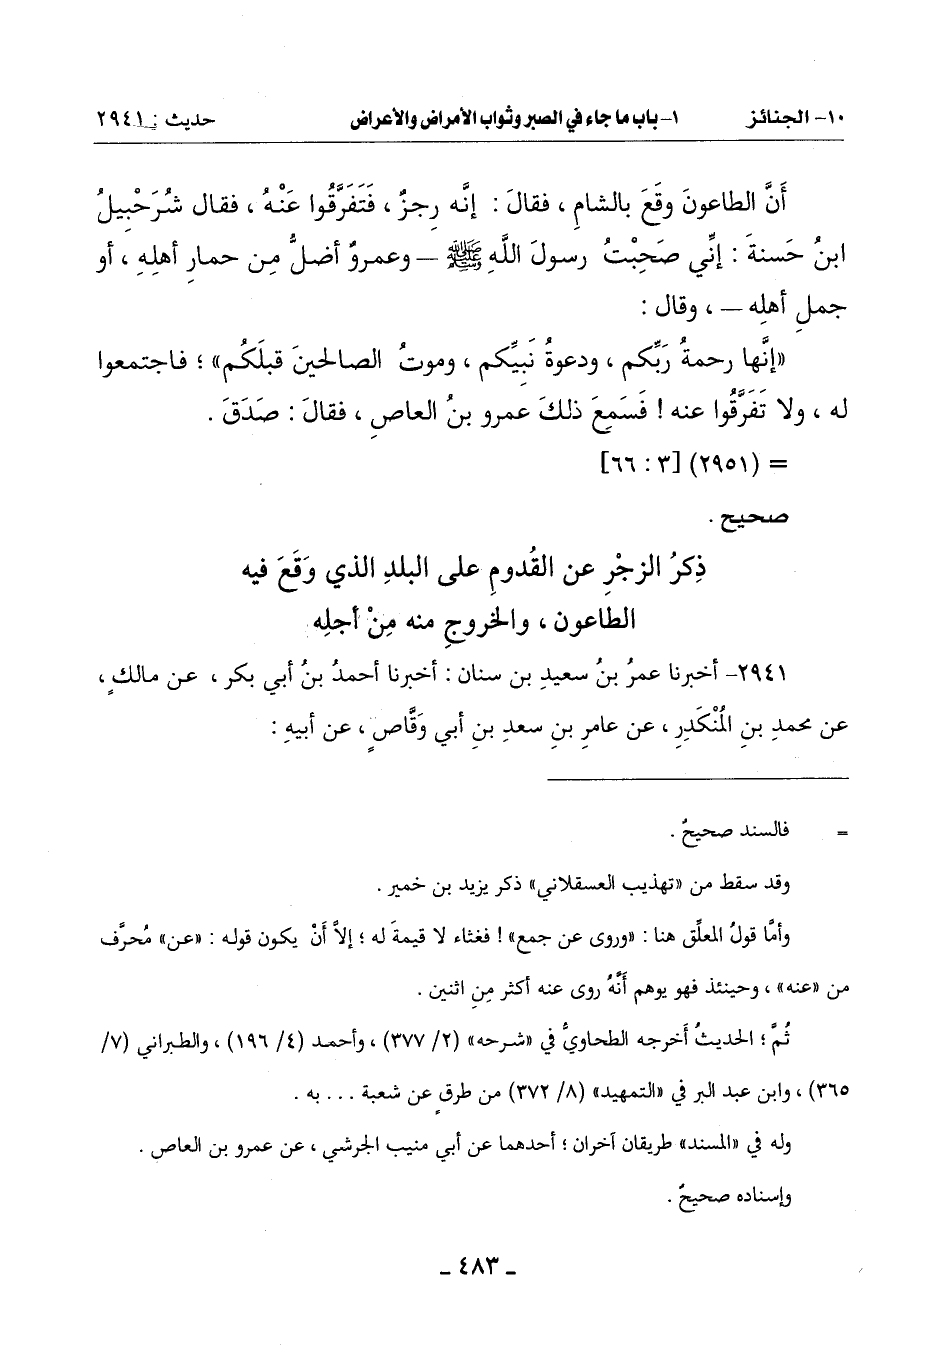 ١٠- الجنائز ١- باب ما جاء في الصبر وثواب الأمراض والأعراض حديث : ٢٩٤١
أَنَّ الطاعونَ وقَعَ بالشامِ ، فقالَ : إنَّه رِجزٌ ، فَتَفَرَّقُوا عَنْهُ ، فقال شُرَحْبِيلُ
ابنُ حَسنةَ : إنِّي صَحِبْتُ رسولَ اللَّهِ ﷺ – وعمروٌ أضلُّ مِن حمارِ أهلِهِ ، أو
جملِ أهلِه – ، وقال :
«إنَّها رحمةُ رَبِّكم ، ودعوةُ نَبِيِّكم ، وموتُ الصالحينَ قبلَكُم» ؛ فاجتمعوا
له ، ولا تَفَرَّقُوا عنه ! فَسَمِعَ ذلكَ عمرو بنُ العاصِ ، فقالَ : صَدَقَ .
= (٢٩٥١) [٣ : ٦٦]
صحيح .
ذِكرُ الزجْرِ عن القُدومِ على البلدِ الذي وَقَعَ فيه
الطاعون ، والخروجِ منه مِنْ أجلِه
٢٩٤١- أخبرنا عمرُ بنُ سعيدِ بن سنان : أخبرنا أحمدُ بنُ أبي بكر ، عن مالكٍ ،
عن محمدِ بنِ المُنْكَدِرِ ، عن عامرِ بنِ سعدِ بنِ أبي وَقَّاصٍ ، عن أبيهِ :
= فالسند صحيحٌ .
وقد سقط من «تهذيب العسقلاني» ذكر يزيد بن خمير .
وأمَّا قولُ المعلِّق هنا : «وروى عن جمع» ! فغثاء لا قيمةَ له ؛ إلاَّ أَنْ يكون قوله : «عن» مُحرَّف
من «عنه» ، وحينئذ فهو يوهم أَنَّهُ روى عنه أكثر مِنِ اثنين .
ثُمَّ ؛ الحديثُ أخرجه الطحاويُّ في «شرحه» (٢/ ٣٧٧) ، وأحمد (٤/ ١٩٦) ، والطبراني (٧/
٣٦٥) ، وابن عبد البر في «التمهيد» (٨/ ٣٧٢) من طرقٍ عن شعبة ... به .
وله في «المسند» طريقان آخران ؛ أحدهما عن أبي منيب الجرشي ، عن عمرو بن العاص .
وإسناده صحيحٌ .
ـ ٤٨٣ ـ